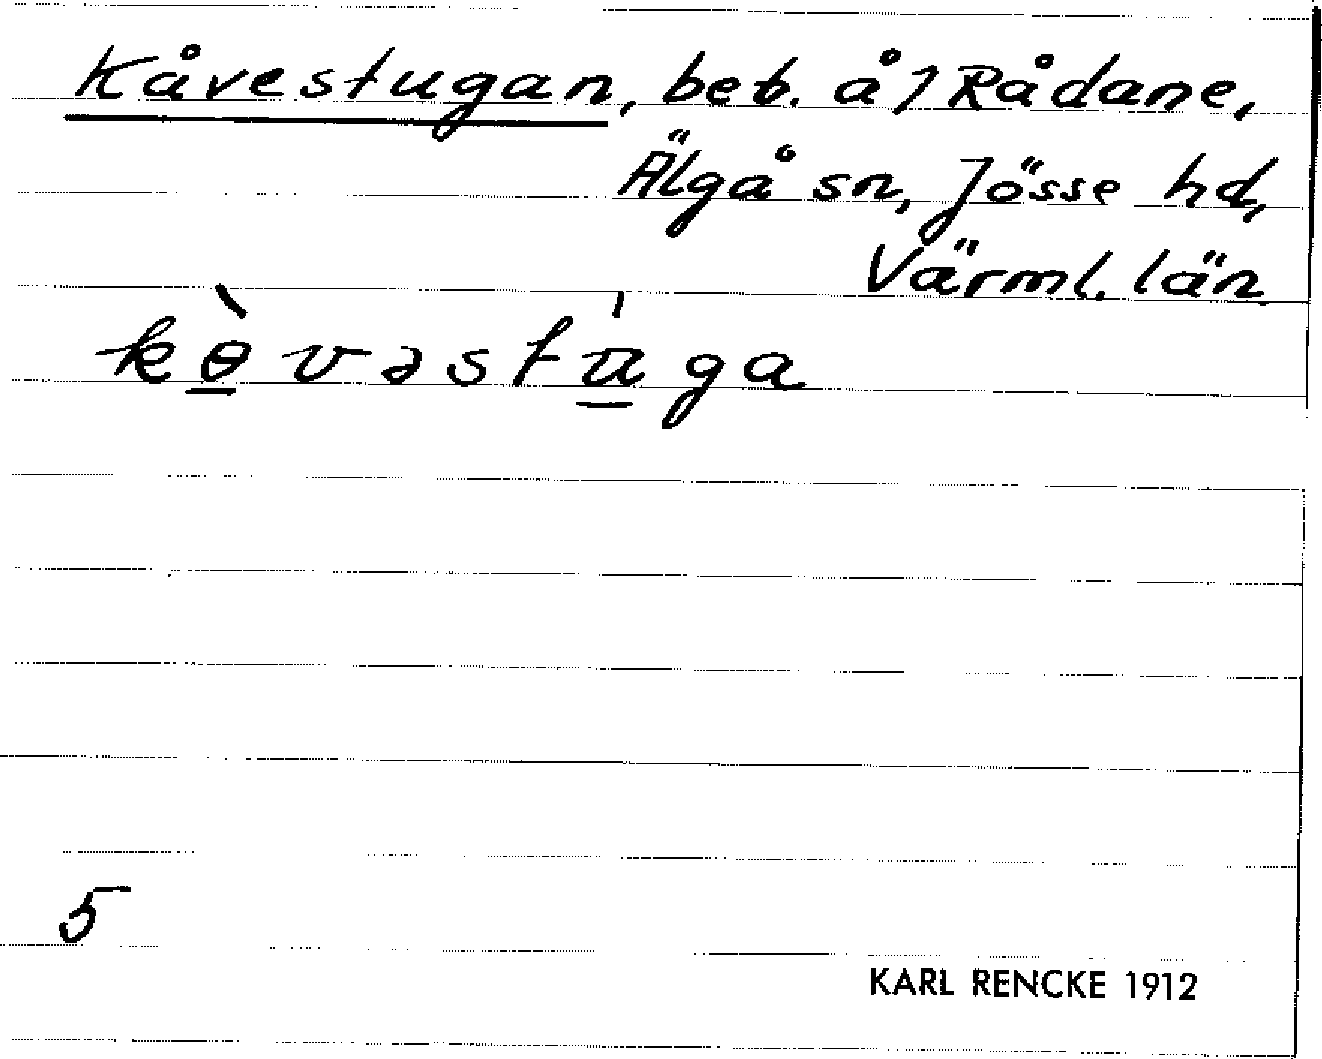 Kåvestugan, beb. å 1 Rådane,
Älgå sn, Jösse hd,
Värml. län
kɵ̀vəstu̍ga
5
KARL RENCKE 1912